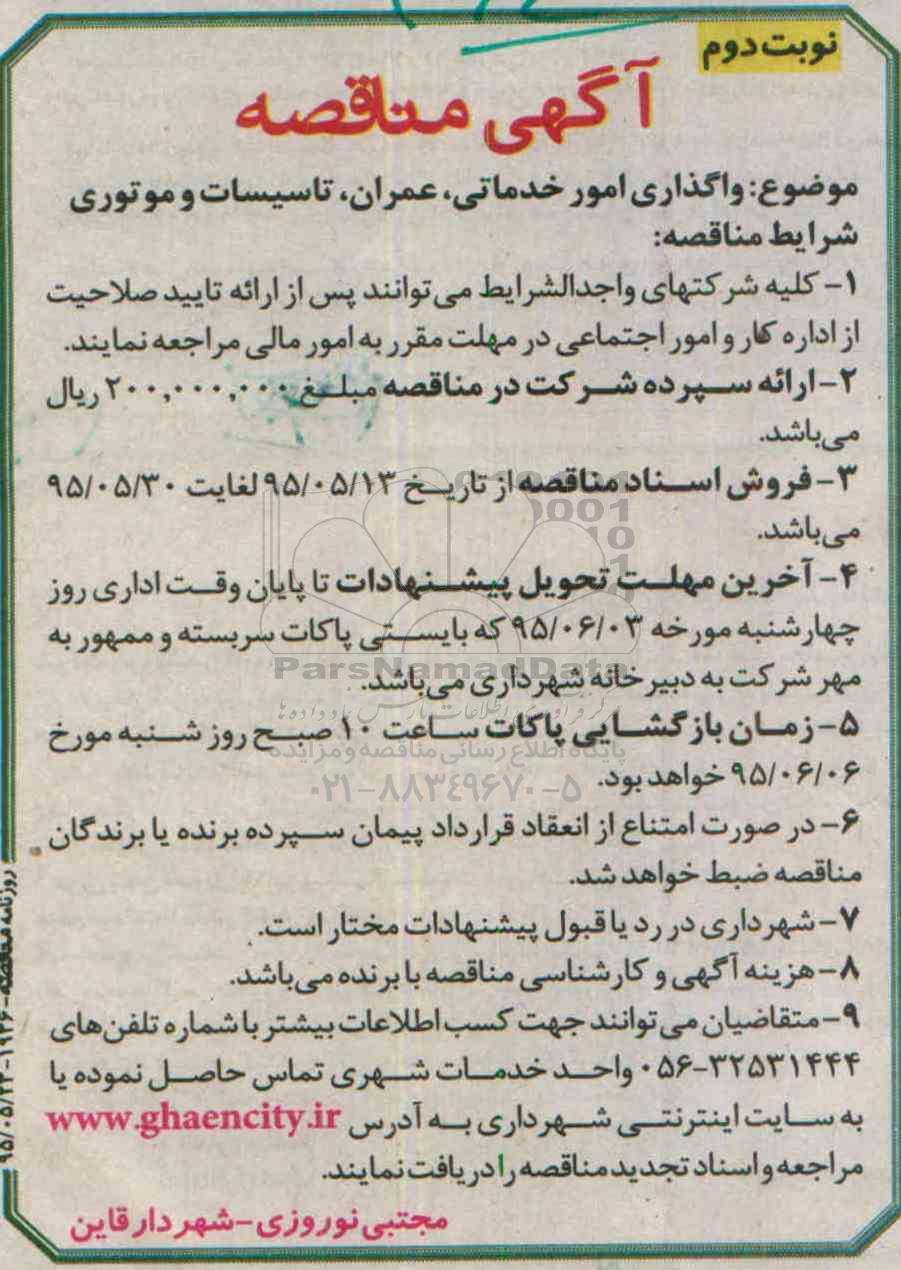 نوبت دوم
آگهی مناقصه
موضوع: واگذاری امور خدماتی، عمران، تاسیسات و موتوری
شرایط مناقصه:
۱- کلیه شرکتهای واجدالشرایط می‌توانند پس از ارائه تایید صلاحیت
از اداره کار و امور اجتماعی در مهلت مقرر به امور مالی مراجعه نمایند.
۲- ارائه سپرده شرکت در مناقصه مبلغ ۲۰۰,۰۰۰,۰۰۰ ریال
می‌باشد.
۳- فروش اسناد مناقصه از تاریخ ۹۵/۰۵/۱۳ لغایت ۹۵/۰۵/۳۰
می‌باشد.
۴- آخرین مهلت تحویل پیشنهادات تا پایان وقت اداری روز
چهارشنبه مورخه ۹۵/۰۶/۰۳ که بایستی پاکات سربسته و ممهور به
مهر شرکت به دبیرخانه شهرداری می‌باشد.
ParsNamadData
۵- زمان بازگشایی پاکات ساعت ۱۰ صبح روز شنبه مورخ
پایگاه اطلاع رسانی مناقصه و مزایده
۹۵/۰۶/۰۶ خواهد بود.
۰۲۱-۸۸۳۴۹۶۷۰-۵
۶- در صورت امتناع از انعقاد قرارداد پیمان سپرده برنده یا برندگان
مناقصه ضبط خواهد شد.
۷- شهرداری در رد یا قبول پیشنهادات مختار است.
۸- هزینه آگهی و کارشناسی مناقصه با برنده می‌باشد.
۹- متقاضیان می‌توانند جهت کسب اطلاعات بیشتر با شماره تلفن‌های
۰۵۶-۳۲۵۳۱۴۴۴ واحد خدمات شهری تماس حاصل نموده یا
به سایت اینترنتی شهرداری به آدرس www.ghaencity.ir
مراجعه و اسناد تجدید مناقصه را دریافت نمایند.
مجتبی نوروزی-شهردار قاین
روزنامه مناقصه